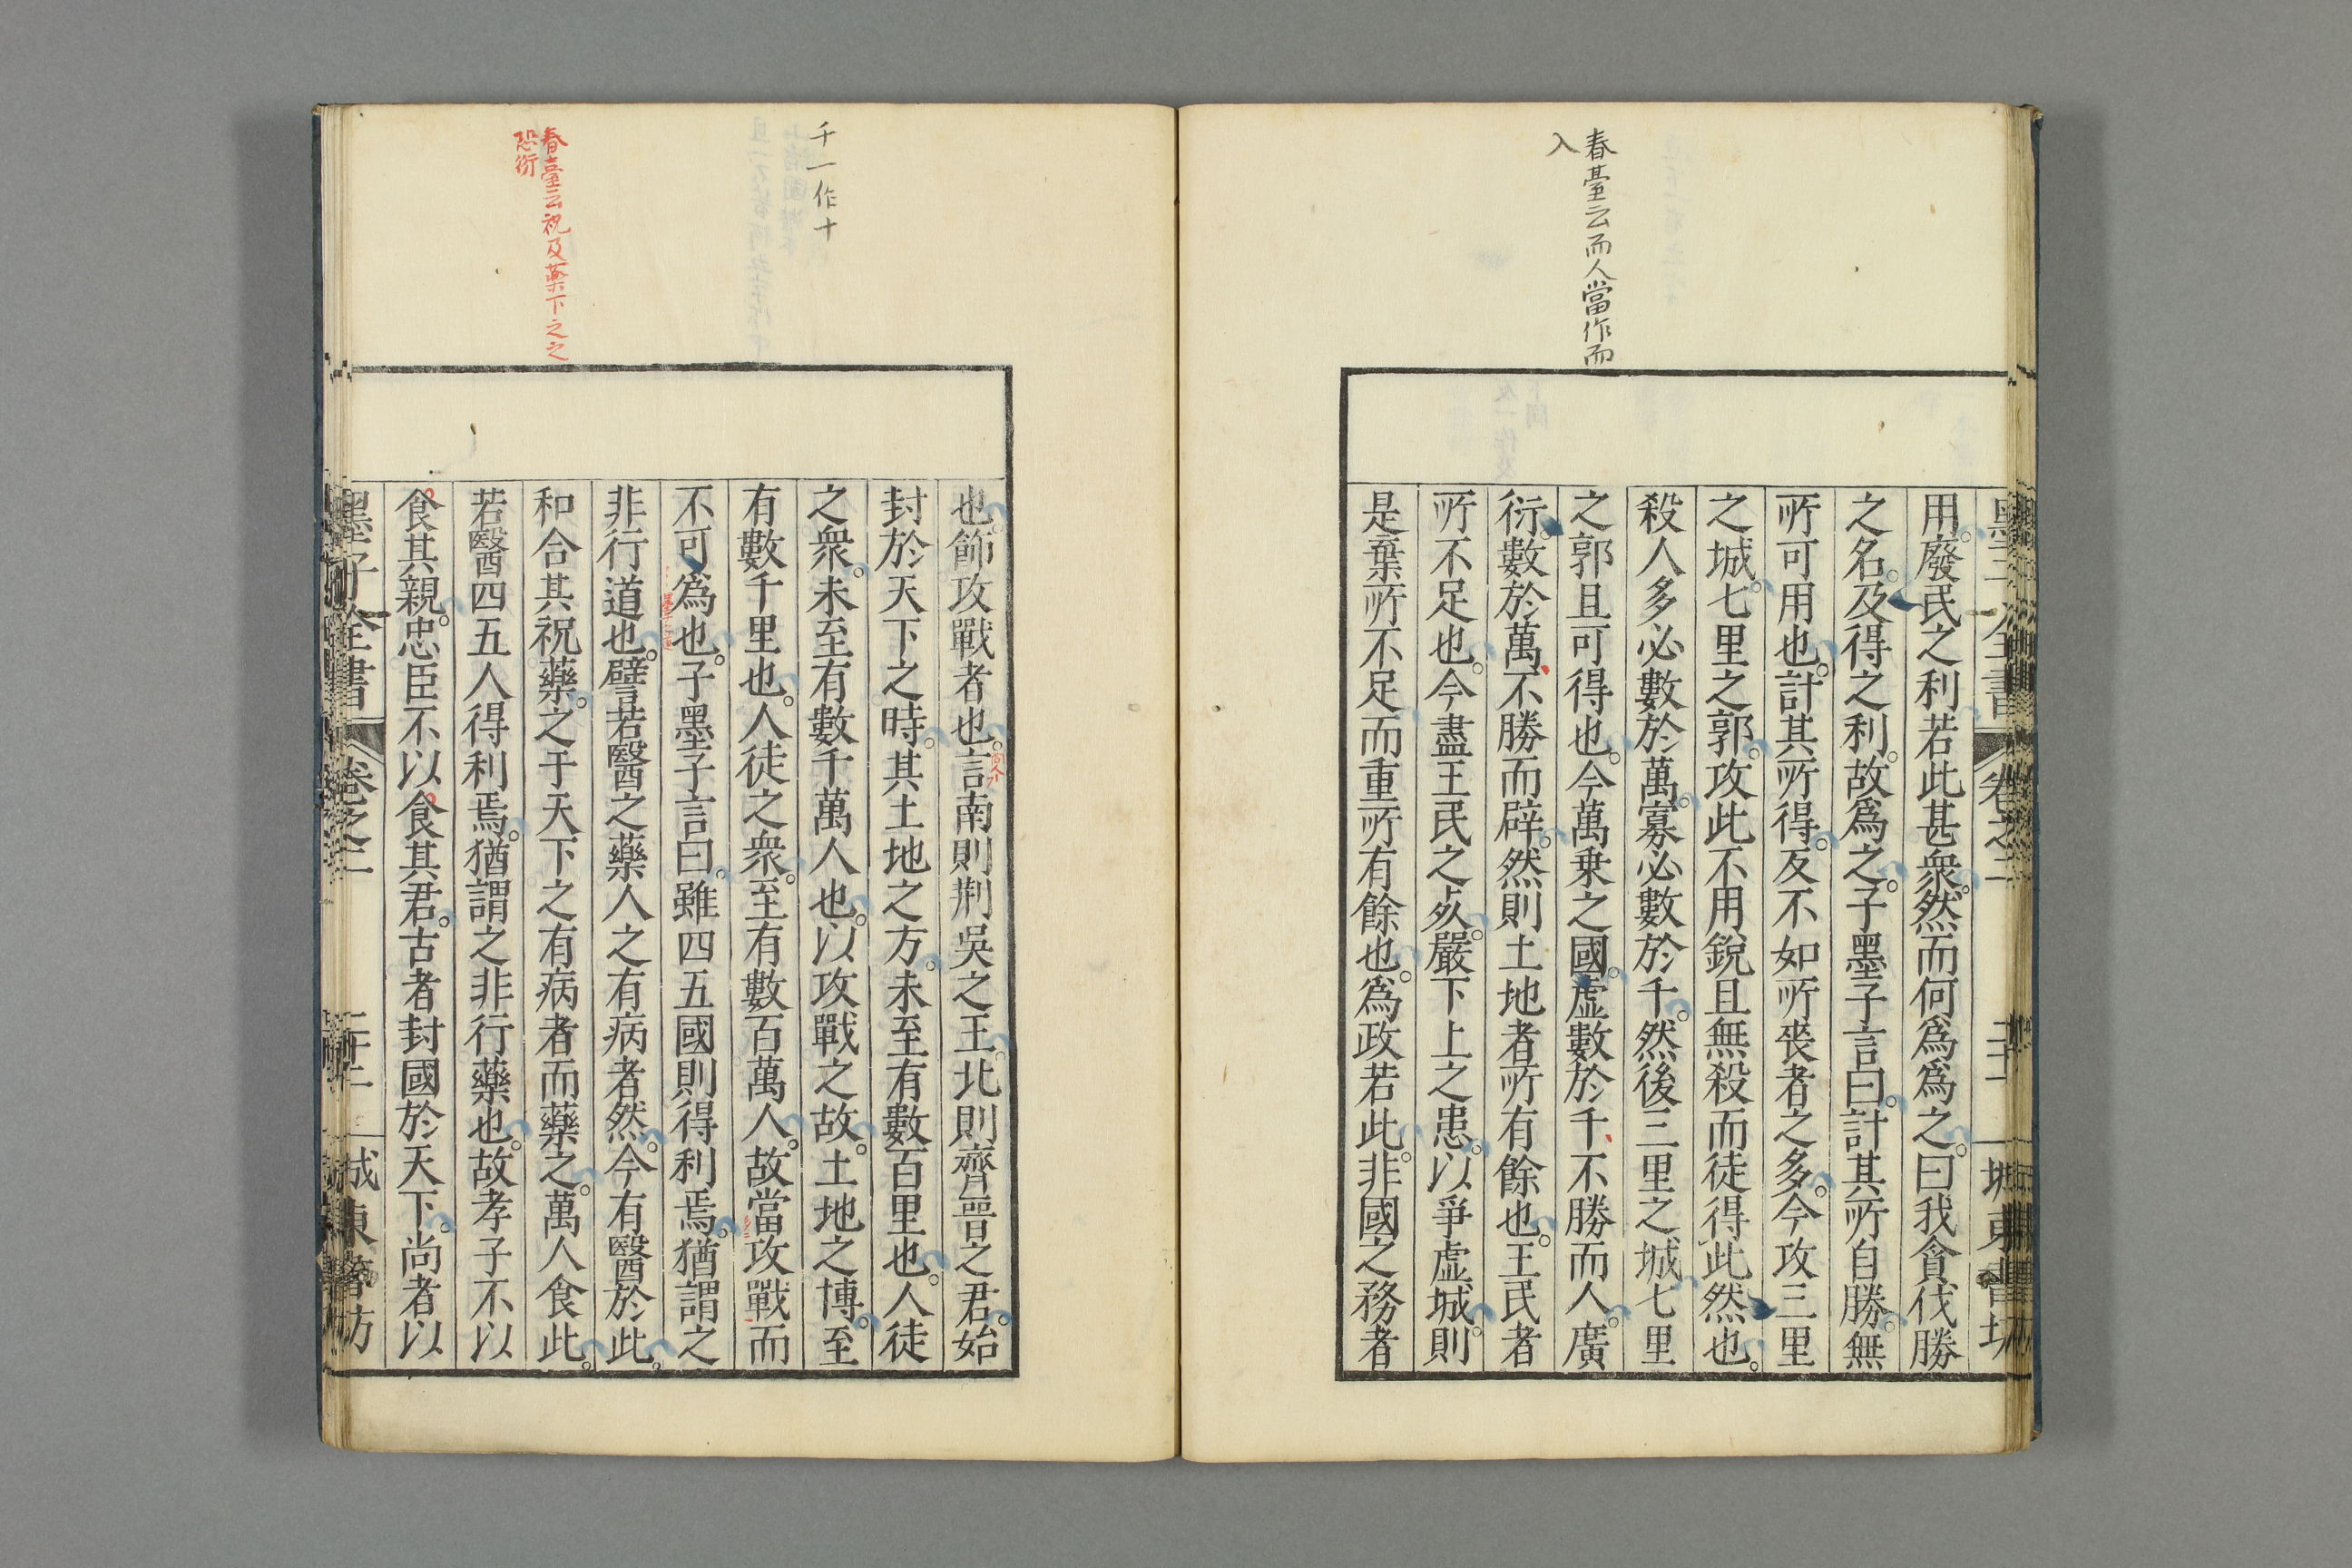 春臺云而人當作而
入
墨子全書　卷之二　二十一　城東書坊
用。廢民之利若此甚衆。然而何爲爲之。曰我貪伐勝
之名。及得之利。故爲之。子墨子言曰。計其所自勝。無
所可用也。計其所得。反不如所喪者之多。今攻三里
之城。七里之郭。攻此不用銳且無殺而徒得此然也。
殺人多必數於萬。寡必數於千。然後三里之城七里
之郭且可得也。今萬乗之國。虚數於千不勝而人。廣
衍。數於萬不勝而辟。然則土地者所有餘也。王民者
所不足也。今盡王民之死。嚴下上之患。以爭虚城。則
是棄所不足而重所有餘也。爲政若此。非國之務者
千一作十
春臺云祝及藥下之之
恐衍
也。飾攻戰者也。言南則荆吳之王。北則齊晉之君。始
封於天下之時。其土地之方。未至有數百里也。人徒
之衆。未至有數千萬人也。以攻戰之故。土地之博。至
有數千里也。人徒之衆。至有數百萬人。故當攻戰而
不可爲也。子墨子言曰。雖四五國則得利焉。猶謂之
非行道也。譬若醫之藥人之有病者然。今有醫於此。
和合其祝藥。之于天下之有病者而藥之。萬人食此。
若醫四五人得利焉。猶謂之非行藥也。故孝子不以
食其親。忠臣不以食其君。古者封國於天下。尚者以
墨子全書　卷之二　二十二　城東書坊